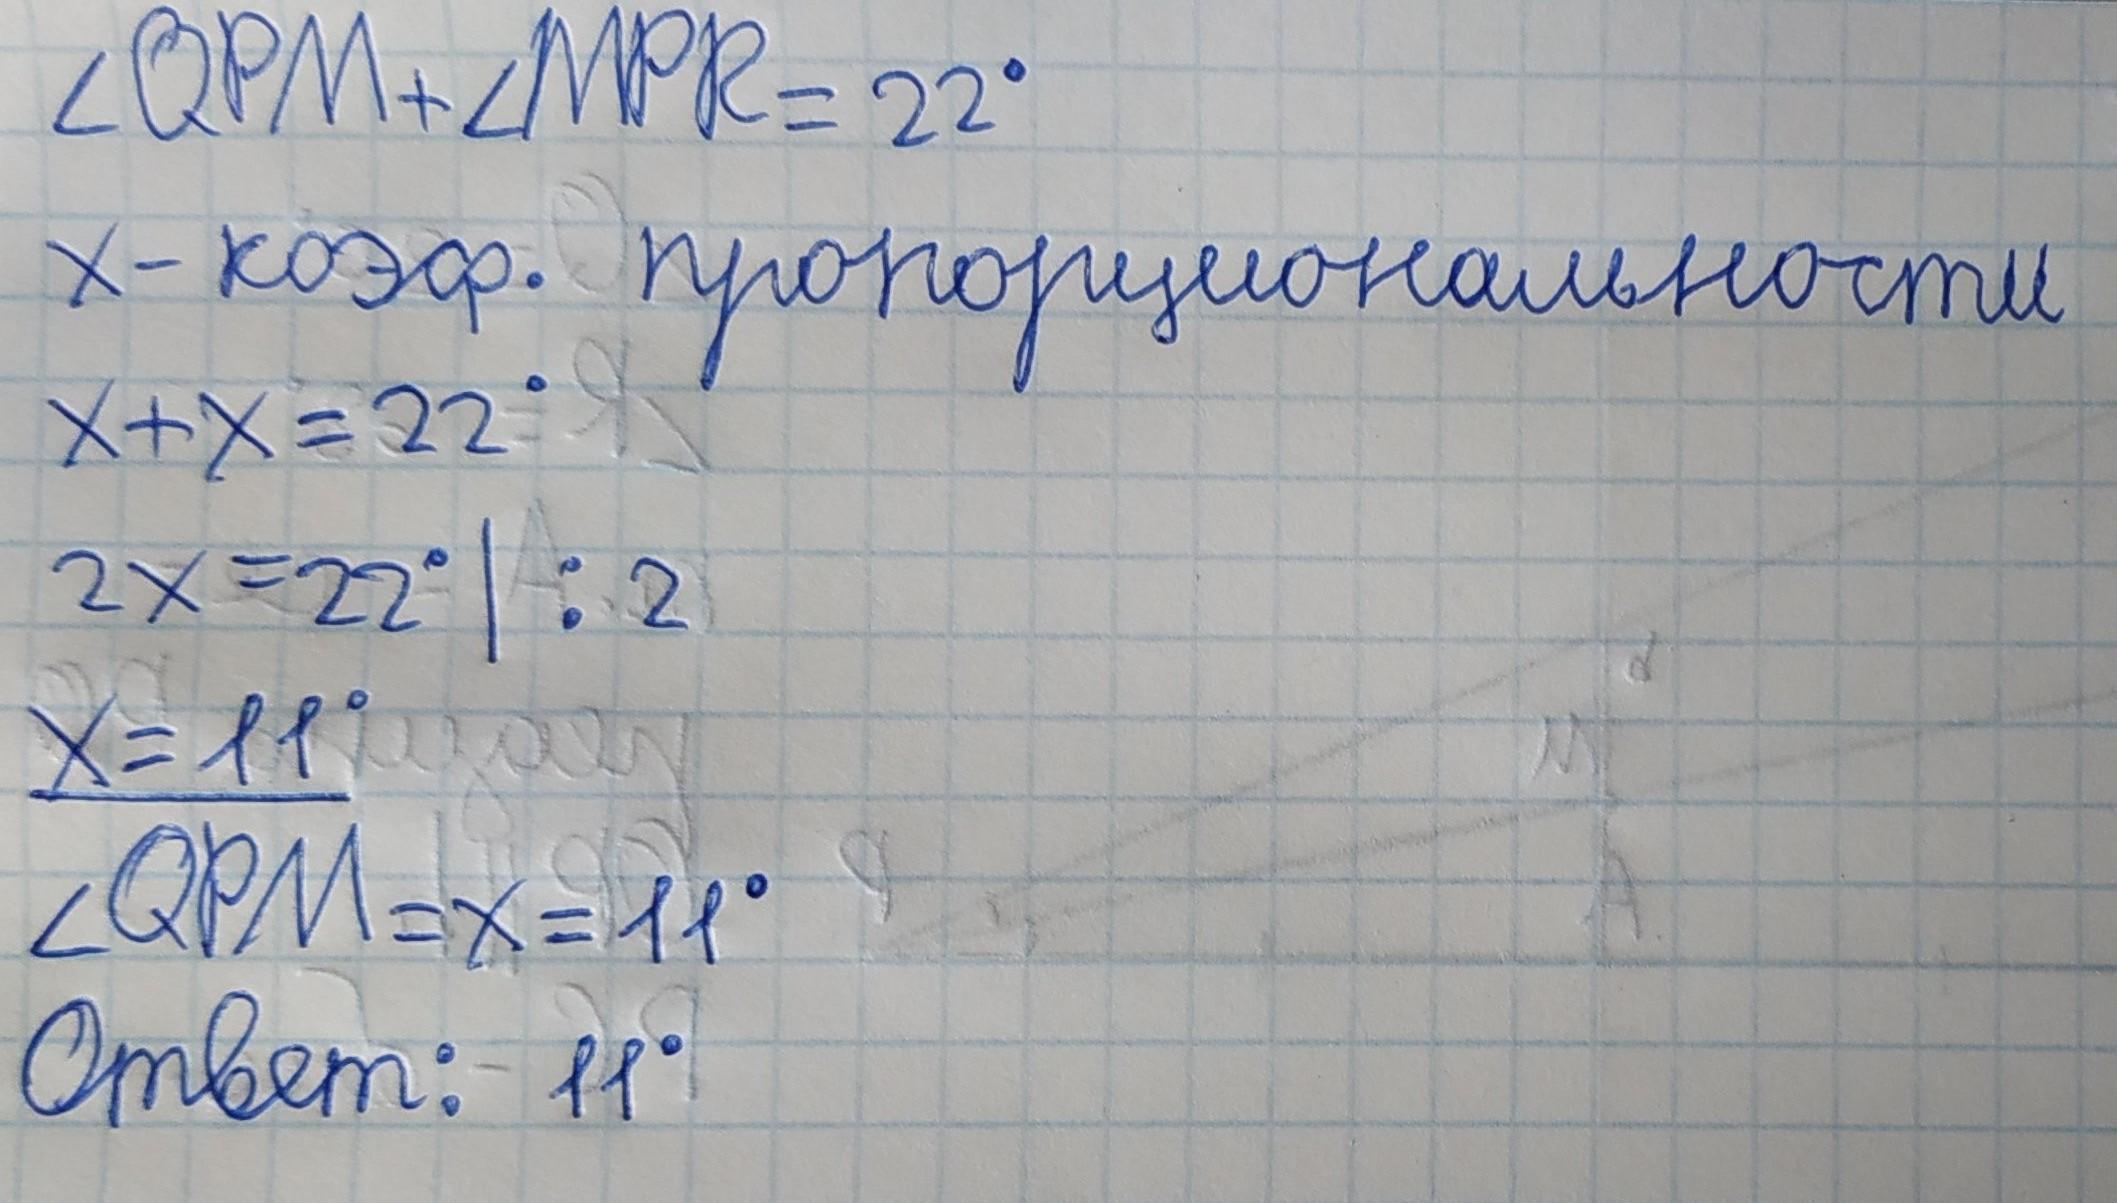 ∠QPM+∠MPR=22°
x- коэф. пропорциональности
x+x=22°
2x=22° | : 2
x=11°
∠QPM=x=11°
Ответ: 11°